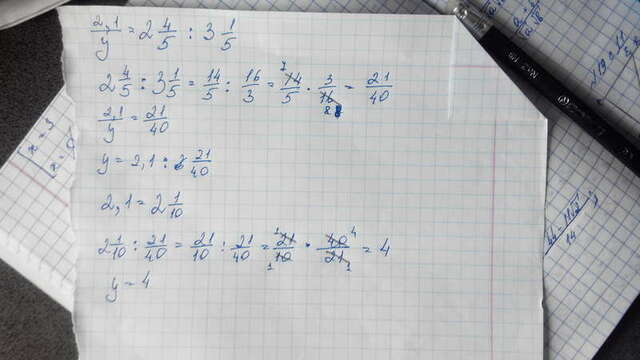 2,1/y = 2 4/5 : 3 1/5
2 4/5 : 3 1/5 = 14/5 : 16/3 = 14/5 · 3/16 = 21/40
2,1/y = 21/40
y = 2,1 : 21/40
2,1 = 2 1/10
2 1/10 : 21/40 = 21/10 : 21/40 = 21/10 · 40/21 = 4
y = 4